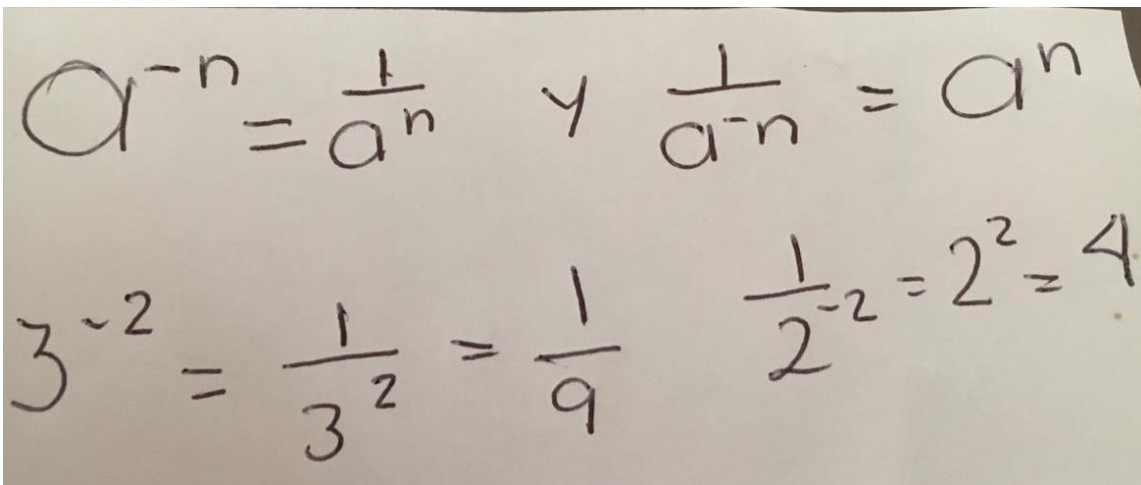 a⁻ⁿ = 1/aⁿ y 1/a⁻ⁿ = aⁿ
3⁻² = 1/3² = 1/9 1/2⁻² = 2² = 4